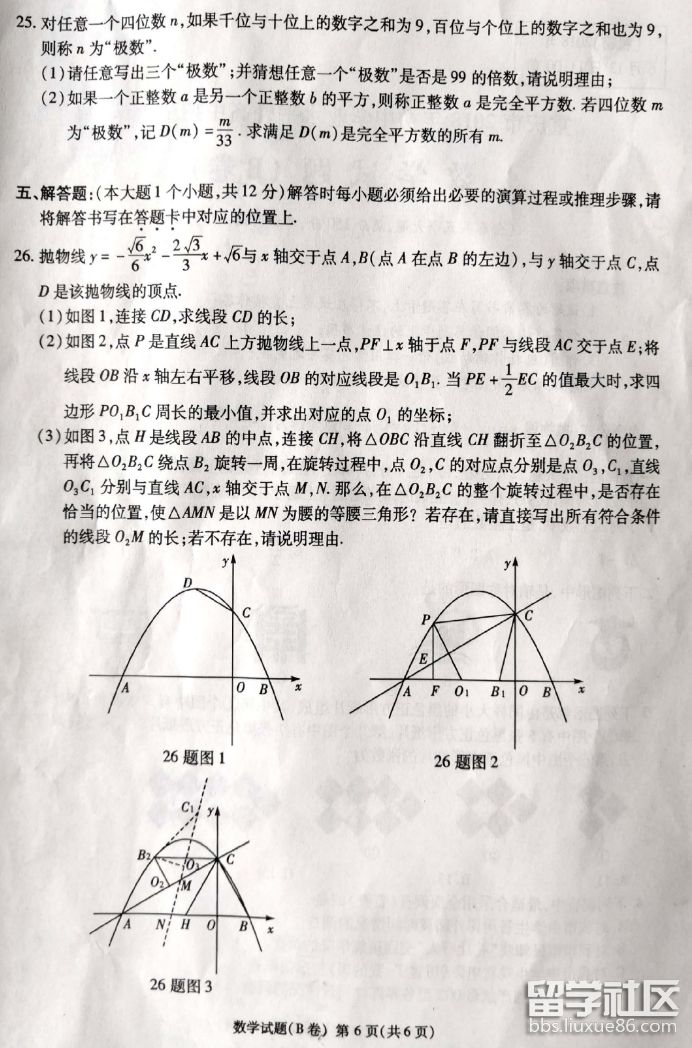 25. 对任意一个四位数 n,如果千位与十位上的数字之和为 9,百位与个位上的数字之和也为 9,
则称 n 为“极数”.
(1)请任意写出三个“极数”;并猜想任意一个“极数”是否是 99 的倍数,请说明理由;
(2)如果一个正整数 a 是另一个正整数 b 的平方,则称正整数 a 是完全平方数. 若四位数 m
为“极数”,记 D(m) = m/33. 求满足 D(m)是完全平方数的所有 m.
五、解答题:(本大题 1 个小题,共 12 分)解答时每小题必须给出必要的演算过程或推理步骤,请
将解答书写在答题卡中对应的位置上.
26. 抛物线 y = -√6/6 x² - 2√3/3 x + √6 与 x 轴交于点 A,B(点 A 在点 B 的左边),与 y 轴交于点 C,点
D 是该抛物线的顶点.
(1)如图 1,连接 CD,求线段 CD 的长;
(2)如图 2,点 P 是直线 AC 上方抛物线上一点,PF⊥x 轴于点 F,PF 与线段 AC 交于点 E;将
线段 OB 沿 x 轴左右平移,线段 OB 的对应线段是 O₁B₁. 当 PE + 1/2 EC 的值最大时,求四
边形 PO₁B₁C 周长的最小值,并求出对应的点 O₁ 的坐标;
(3)如图 3,点 H 是线段 AB 的中点,连接 CH,将△OBC 沿直线 CH 翻折至△O₂B₂C 的位置,
再将△O₂B₂C 绕点 B₂ 旋转一周,在旋转过程中,点 O₂,C 的对应点分别是点 O₃,C₁,直线
O₃C₁ 分别与直线 AC,x 轴交于点 M,N. 那么,在△O₂B₂C 的整个旋转过程中,是否存在
恰当的位置,使△AMN 是以 MN 为腰的等腰三角形?若存在,请直接写出所有符合条件
的线段 O₂M 的长;若不存在,请说明理由.
y
D
C
A O B x
26 题图 1
y
P C
E
A F O₁ B₁ O B x
26 题图 2
C₁ y
B₂ O₃ C
O₂ M
A N H O B x
26 题图 3
数学试题(B 卷) 第 6 页(共 6 页)
留学社区
bbs.liuxue86.com